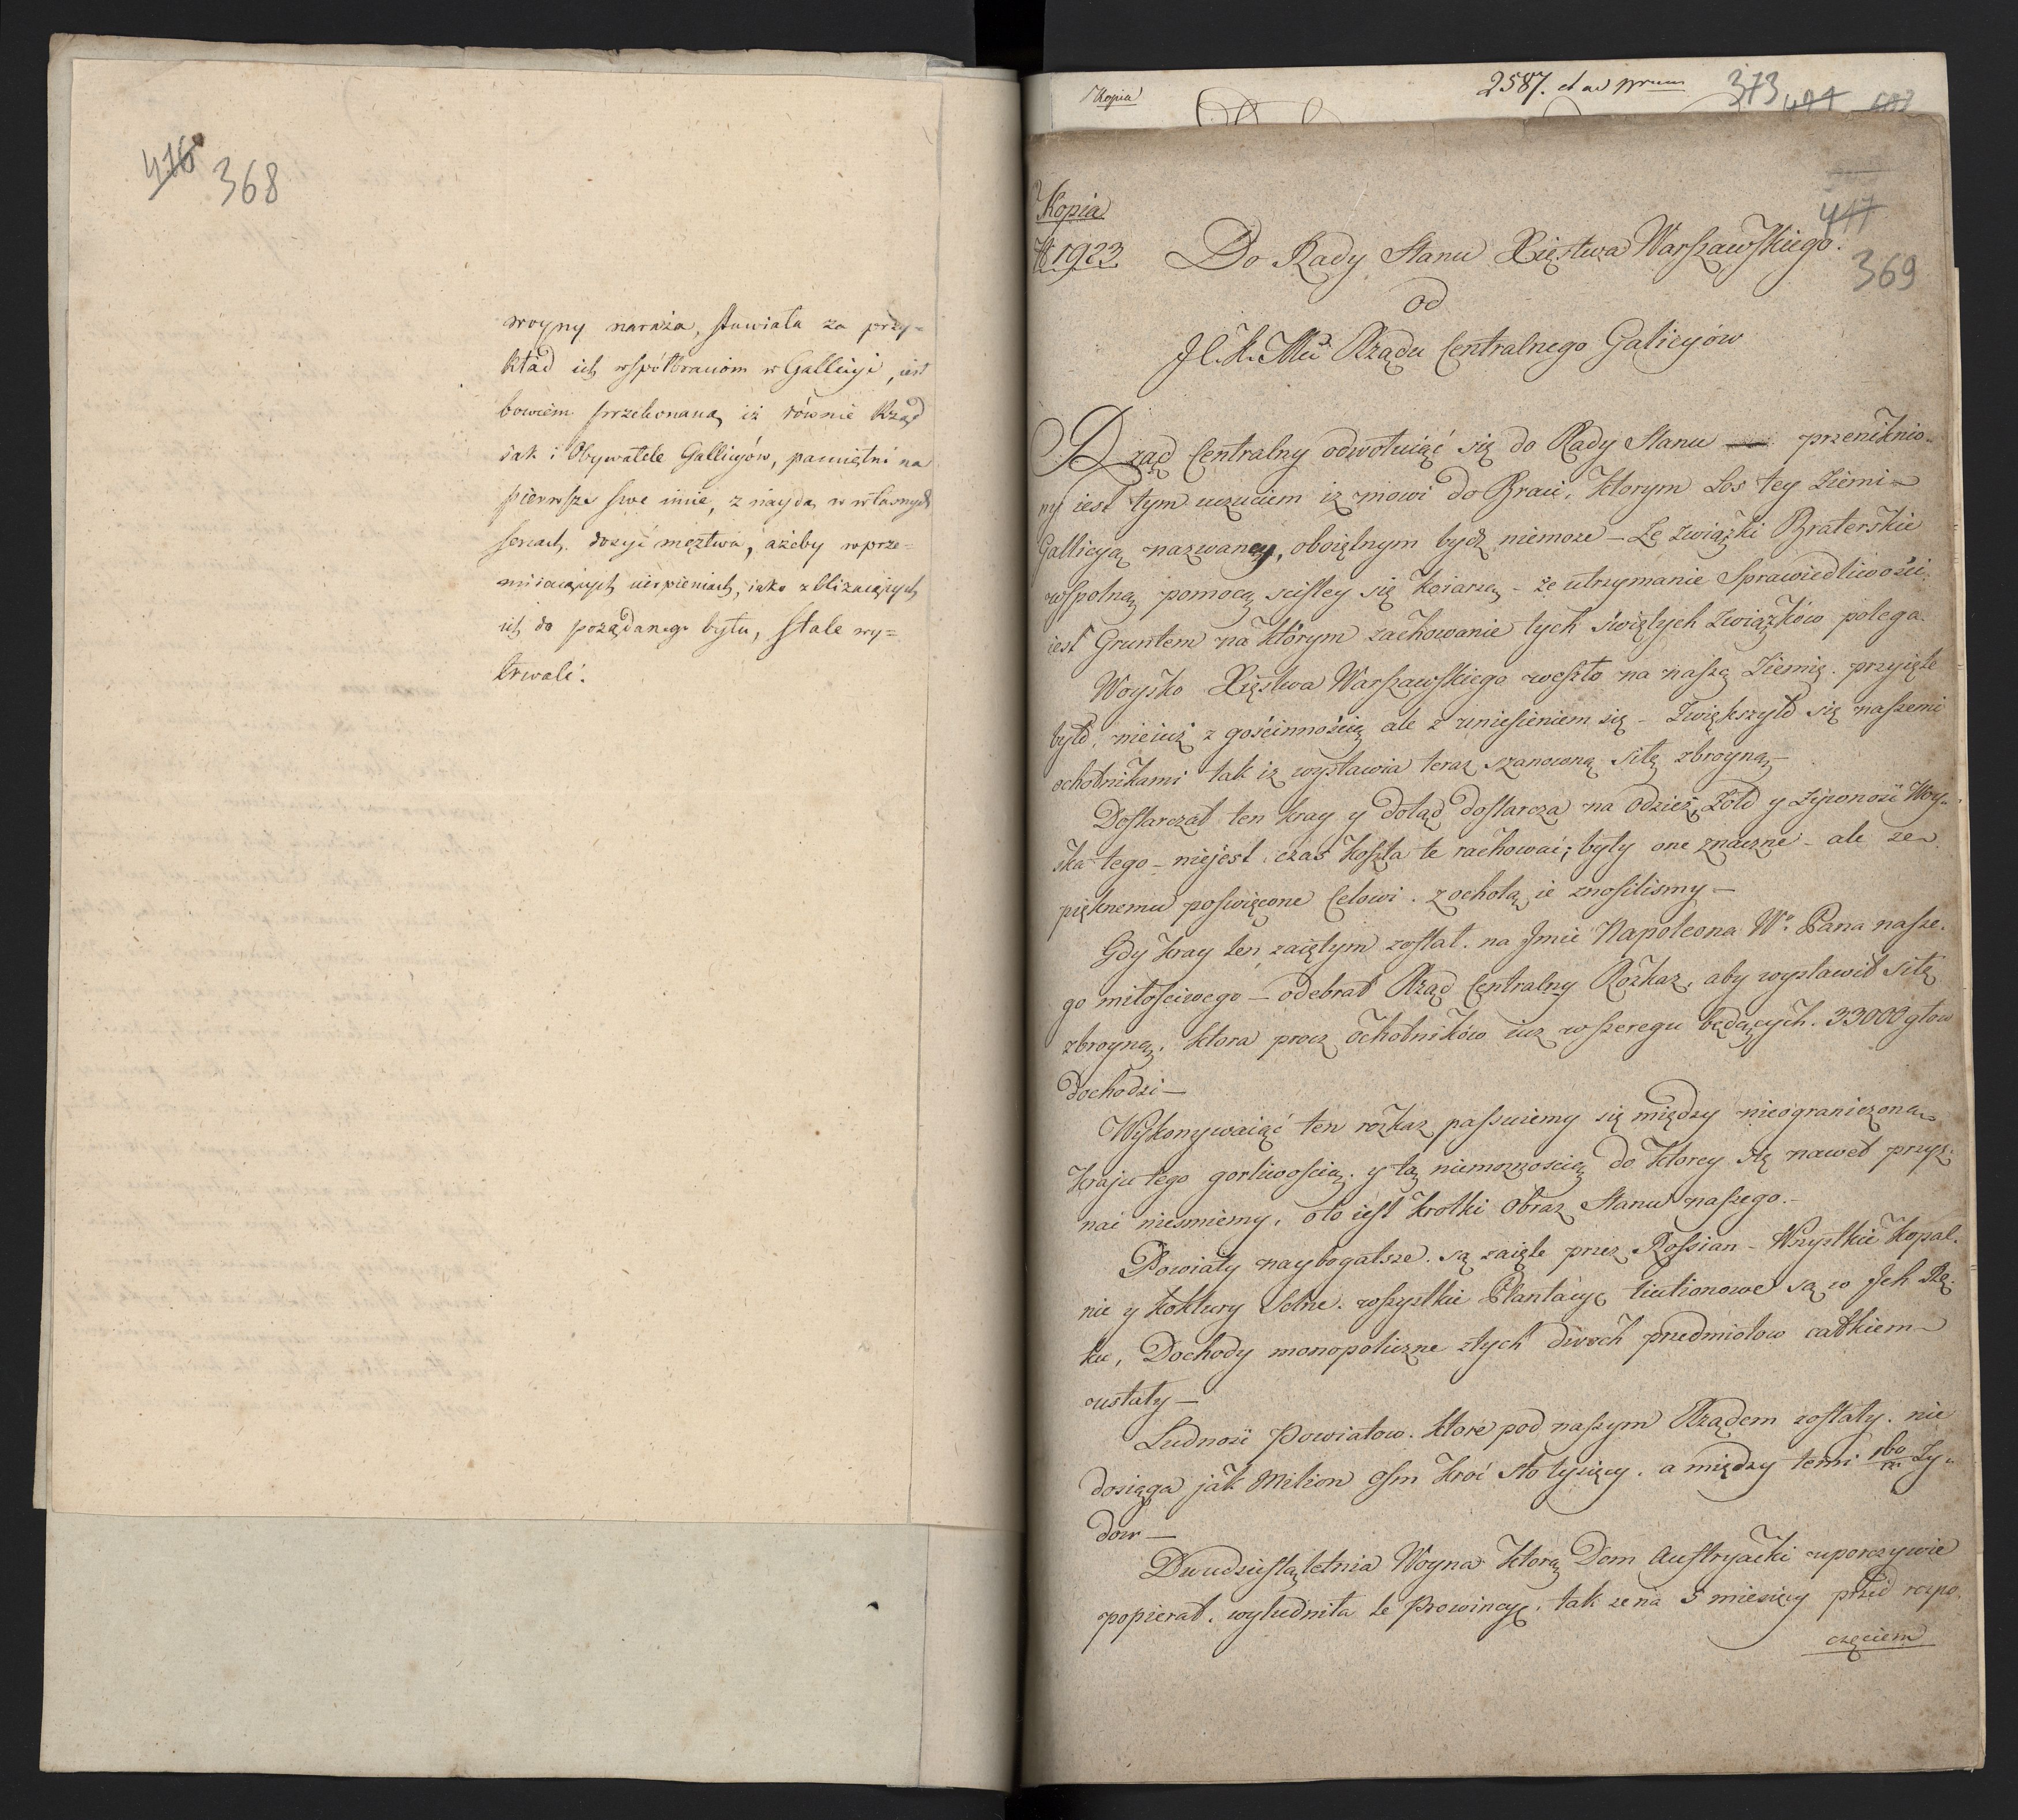 416 368
woyny naraża, stawiała za przy=
kład ich współbraciom w Gallicyi, iest
bowiem przekonaną iż równie Rząd
jak i Obywatele Gallicyów, pamiętni na
pierwsze swe imie, znaydą w własnych
sercach dosyć męztwa, ażeby w prze=
miiaiących cierpieniach, iako zbliżaiących
ich do pożądanego bytu, stale wy=
trwali.
Kopia
2587. et ad
373
Kopia
417
№ 1923 Do Rady Stanu Xięstwa Warszawskiego.
369
od
J. C. K. Mci Rządu Centralnego Galicyów
Rząd Centralny odwołuiąć się do Rady Stanu przeniknio-
ny iest tym uczuciem iz mowi do Braci, ktorym Los tey Ziemi
Gallicyą nazwaney, oboiętnym bydź niemoze – Ze związki Braterskie
wspolną pomocą scisley się koiarzą – że utrzymanie Sprawiedliwości
iest Gruntem na którym zachowanie tych świętych związków polega.
Woysko Xięstwa Warszawskiego weszło na naszę Ziemię. przyięte
było, nieiuż z gościnnością ale z uniesieniem się – Zwiększyło się naszemi
ochotnikami tak iz wystawia teraz szanowną siłę zbroyną –
Dostarczał ten kray y dotąd dostarcza na odzież, żołd y żywność Woy-
ska tego – niejest czas koszta te rachować; były one znaczne – ale ze
pięknemu poswięcone Celowi. z ochotą ie znosilismy –
Gdy kray ten zaiętym został. na Jmie Napoleona Wo. Pana nasze-
go miłosciwego – odebrał Rząd Centralny Rozkaz, aby wystawił siłę
zbroyną, ktora procz ochotników iuz w szeregu będących. 33000 głow
dochodzi –
Wykonywaiąć ten rozkaz passuiemy się między nieograniczoną
kraju tego gorliwoscią. y tą niemoznoscią do ktorey się nawet przyz-
nać niesmiemy, oto iest krotki obraz Stanu naszego. –
Powiaty naybogatsze. są zaięte przez Rossian – Wszystkie kopal-
nie y koktury Solne. wszystkie Plantacye tiutionowe są w Jch Rę-
ku, Dochody monopoliczne z tych dwoch przedmiotow całkiem
ustały –
Ludność Powiatow. ktore pod naszym Rządem zostały. nie
dosięga jak Milion osm kroć sto tysięcy. a między temi Ży-
dow –
Dwudziestąletnia Woyna ktorą Dom Austryacki uporczywie
popierał. wyludniła te Prowincye. tak ze na 5 miesięcy przed rozpo-
częciem